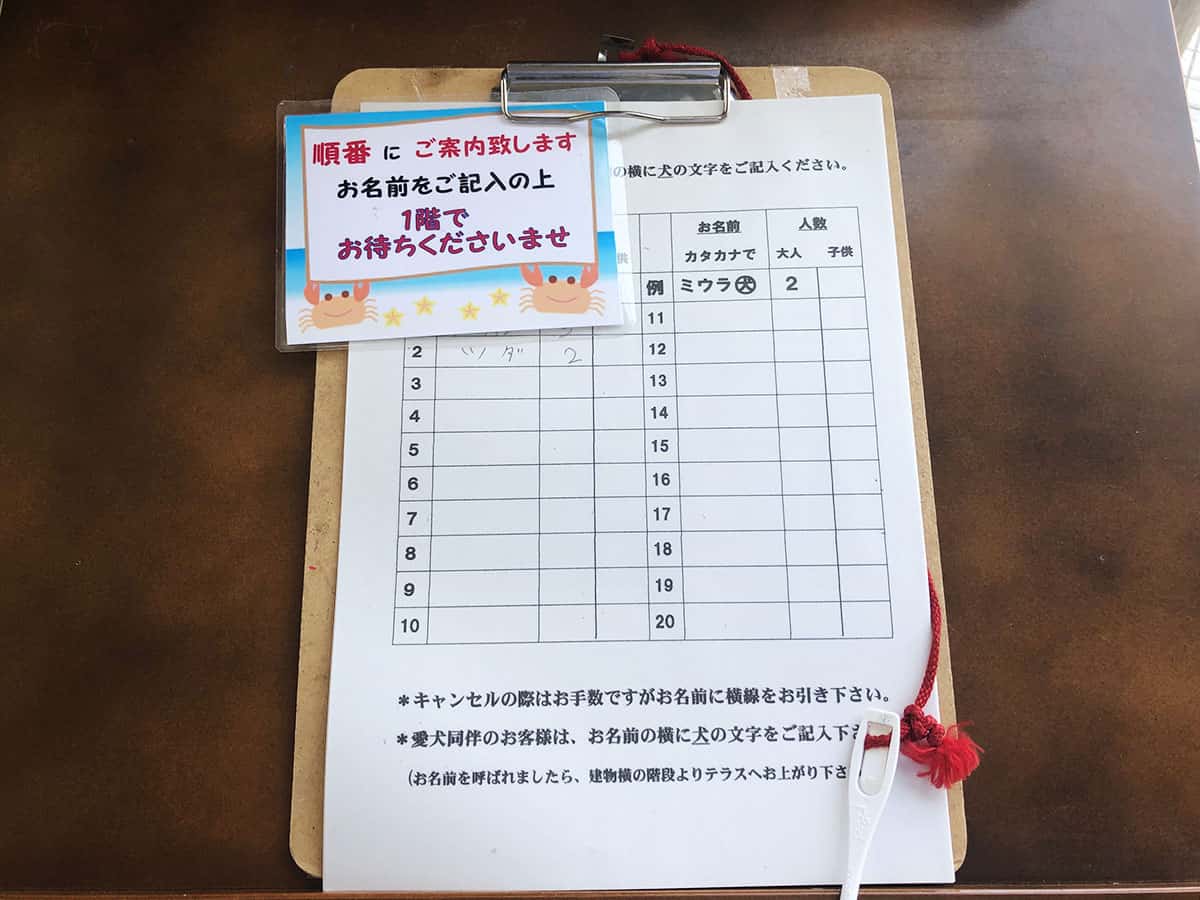 順番 に ご案内致します
お名前をご記入の上
1階で
お待ちくださいませ
の横に犬の文字をご記入ください。
お名前 人数
供 カタカナで 大人 子供
例 ミウラ㊛ 2
11
2 ツダ 2 12
3 13
4 14
5 15
6 16
7 17
8 18
9 19
10 20
*キャンセルの際はお手数ですがお名前に横線をお引き下さい。
*愛犬同伴のお客様は、お名前の横に犬の文字をご記入下
(お名前を呼ばれましたら、建物横の階段よりテラスへお上がり下さ